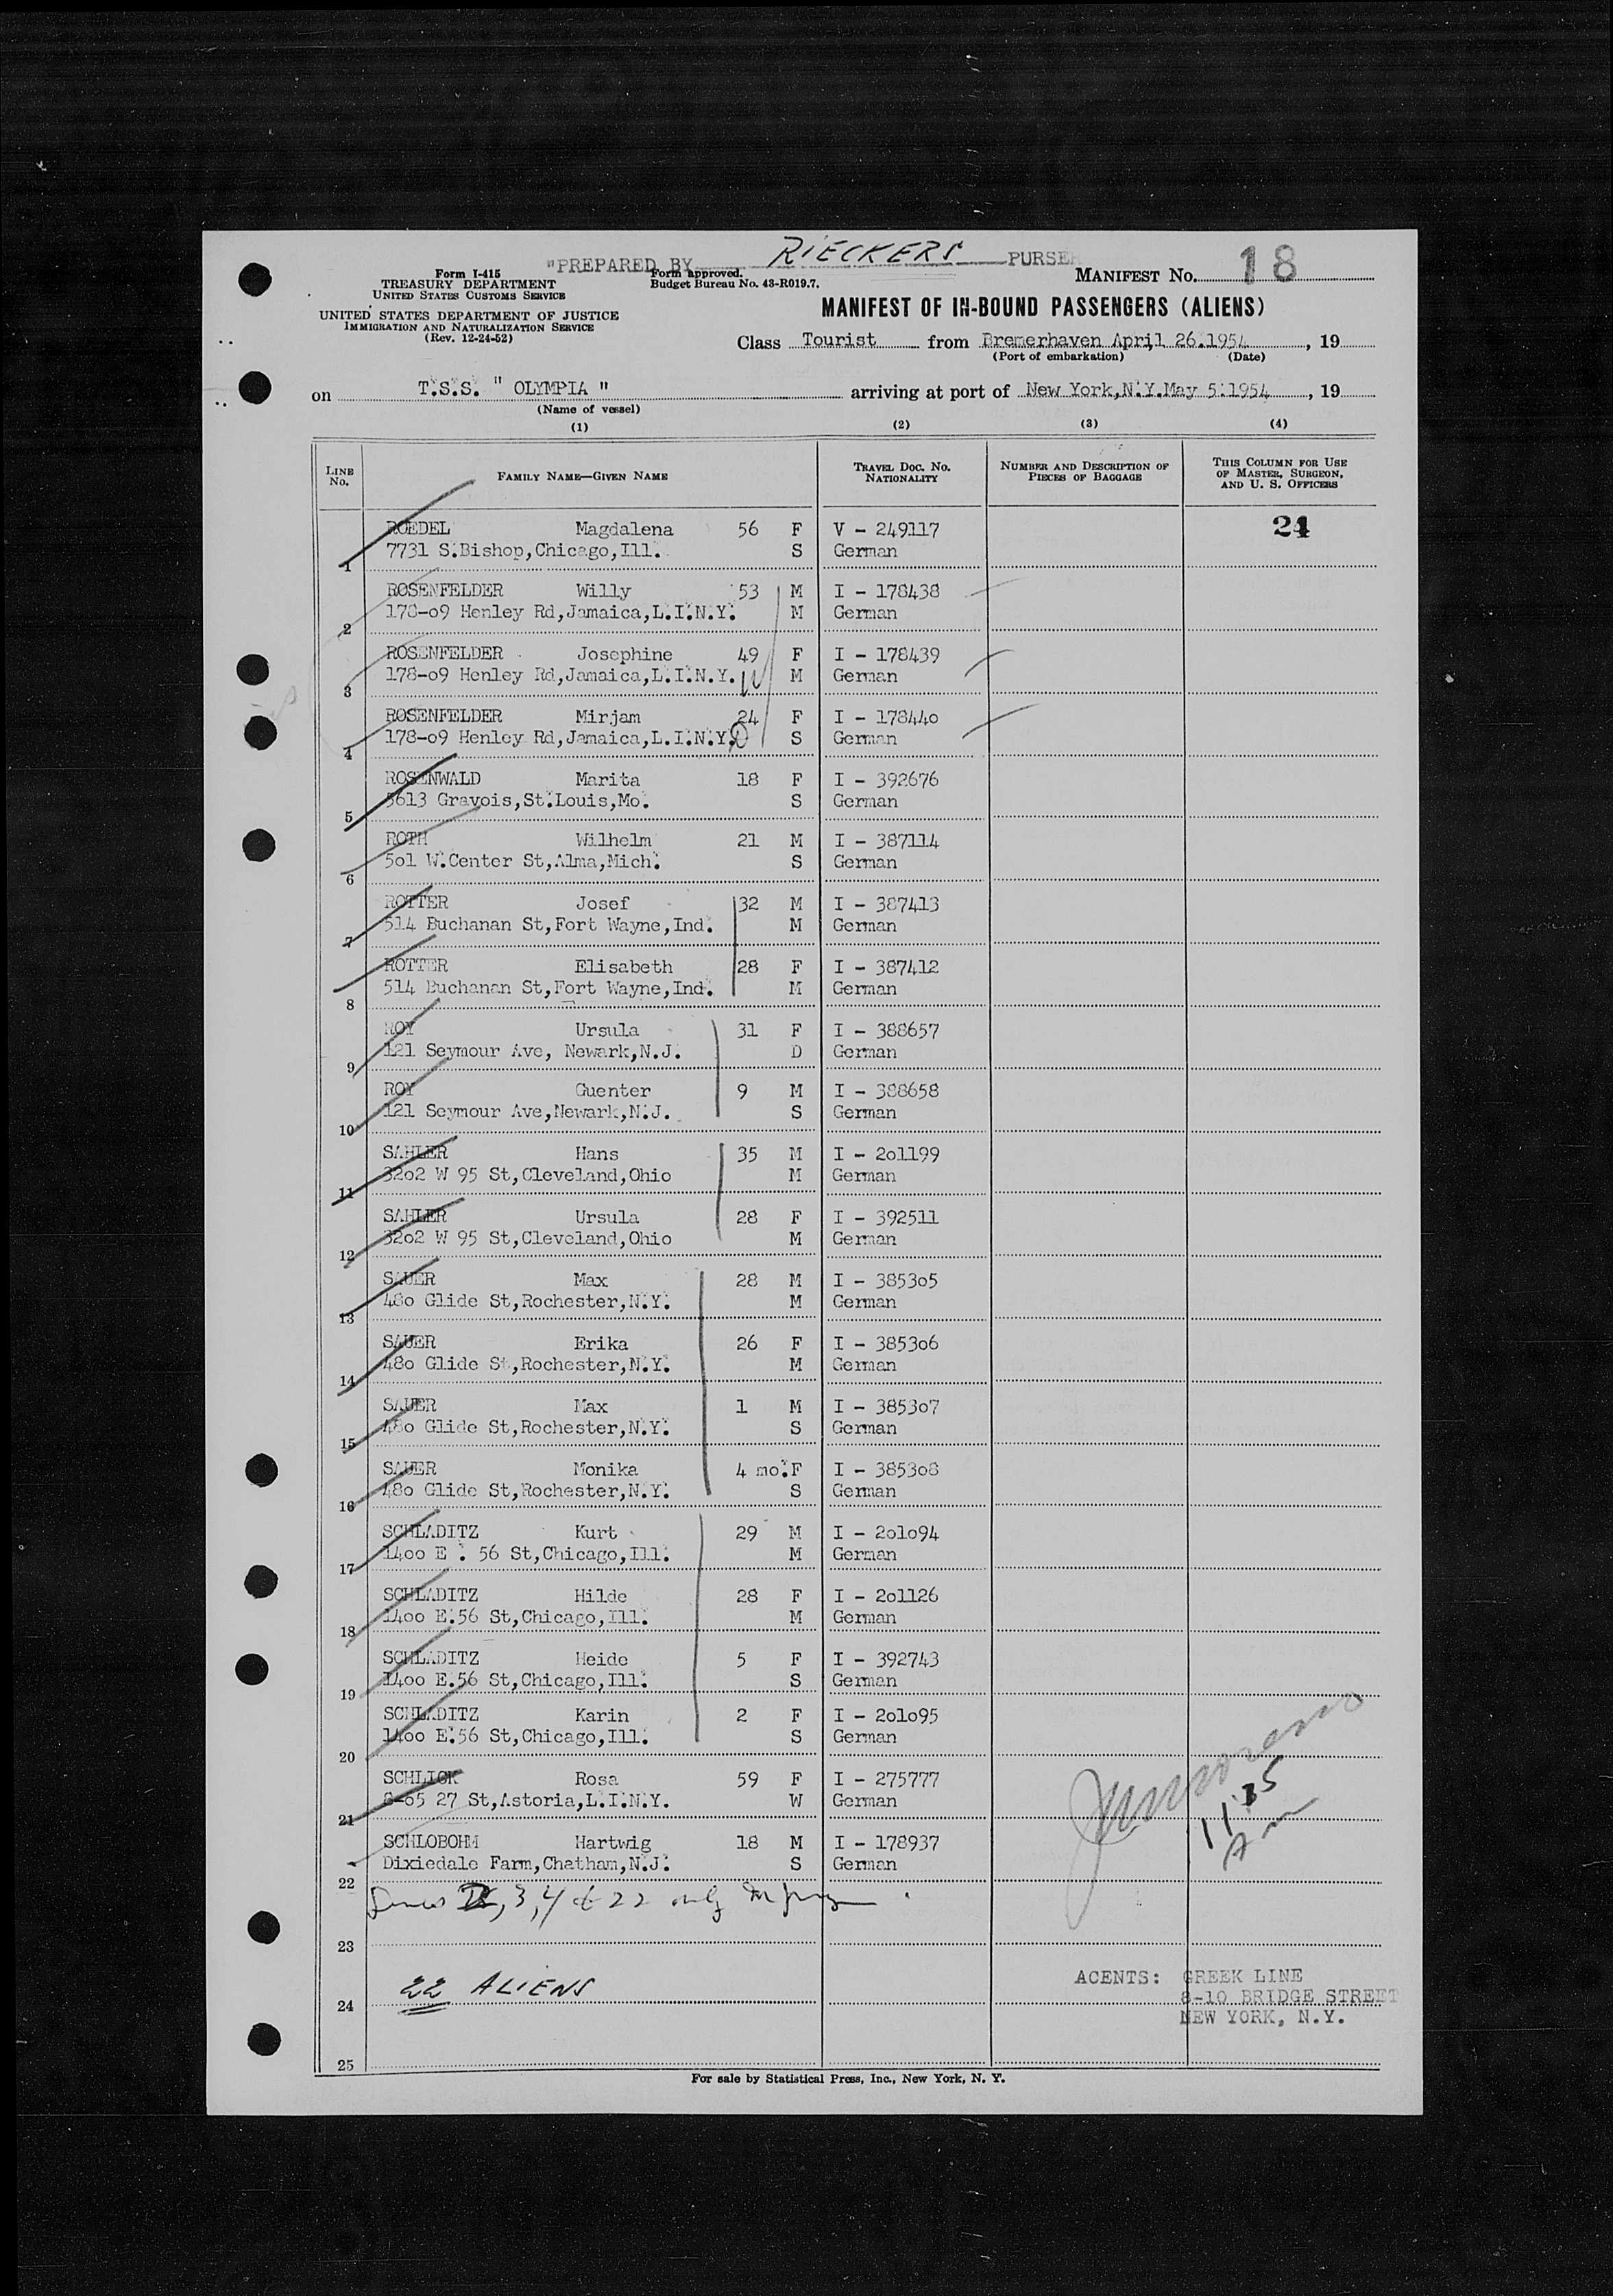 "PREPARED BY RIECKERS PURSER
Form I-415
TREASURY DEPARTMENT
UNITED STATES CUSTOMS SERVICE
UNITED STATES DEPARTMENT OF JUSTICE
IMMIGRATION AND NATURALIZATION SERVICE
(Rev. 12-24-52)
Form approved.
Budget Bureau No. 43-R019.7.
MANIFEST No. 18
MANIFEST OF IN-BOUND PASSENGERS (ALIENS)
Class Tourist from Bremerhaven April 26.1954, 19
(Port of embarkation) (Date)
on T.S.S. " OLYMPIA " arriving at port of New York,N.Y.May 5.1954, 19
(Name of vessel)
(1) (2) (3) (4)
LINE No. FAMILY NAME—GIVEN NAME TRAVEL DOC. No. NATIONALITY NUMBER AND DESCRIPTION OF PIECES OF BAGGAGE THIS COLUMN FOR USE OF MASTER, SURGEON, AND U. S. OFFICERS
ROEDEL Magdalena 56 F V - 249117 24
1 7731 S.Bishop,Chicago,Ill. S German
ROSENFELDER Willy 53 M I - 178438
2 178-o9 Henley Rd,Jamaica,L.I.N.Y. M German
ROSENFELDER Josephine 49 F I - 178439
3 178-o9 Henley Rd,Jamaica,L.I.N.Y. M German
ROSENFELDER Mirjam 24 F I - 17844o
4 178-o9 Henley Rd,Jamaica,L.I.N.Y. S German
ROSENWALD Marita 18 F I - 392676
5 5613 Gravois,St.Louis,Mo. S German
ROTH Wilhelm 21 M I - 387114
6 5o1 W.Center St,Alma,Mich. S German
ROTTER Josef 32 M I - 387413
7 514 Buchanan St,Fort Wayne,Ind. M German
ROTTER Elisabeth 28 F I - 387412
8 514 Buchanan St,Fort Wayne,Ind. M German
ROY Ursula 31 F I - 388657
9 121 Seymour Ave, Newark,N.J. D German
ROY Guenter 9 M I - 388658
10 121 Seymour Ave,Newark,N.J. S German
SAHLER Hans 35 M I - 2o1199
11 32o2 W 95 St,Cleveland,Ohio M German
SAHLER Ursula 28 F I - 392511
12 32o2 W 95 St,Cleveland,Ohio M German
SAUER Max 28 M I - 3853o5
13 48o Glide St,Rochester,N.Y. M German
SAUER Erika 26 F I - 3853o6
14 48o Glide St,Rochester,N.Y. M German
SAUER Max 1 M I - 3853o7
15 48o Glide St,Rochester,N.Y. S German
SAUER Monika 4 mo.F I - 3853o8
16 48o Glide St,Rochester,N.Y. S German
SCHLADITZ Kurt 29 M I - 2o1o94
17 14oo E . 56 St,Chicago,Ill. M German
SCHLADITZ Hilde 28 F I - 2o1126
18 14oo E.56 St,Chicago,Ill. M German
SCHLADITZ Heide 5 F I - 392743
19 14oo E.56 St,Chicago,Ill. S German
SCHLADITZ Karin 2 F I - 2o1o95
20 14oo E.56 St,Chicago,Ill. S German
SCHLICK Rosa 59 F I - 275777
21 8-o5 27 St,Astoria,L.I.N.Y. W German
SCHLOBOHM Hartwig 18 M I - 178937
22 Dixiedale Farm,Chatham,N.J. S German
3, 4 & 22 only
23
22 ALIENS
24
25
AGENTS: GREEK LINE
8-10 BRIDGE STREET
NEW YORK, N.Y.
For sale by Statistical Press, Inc., New York, N. Y.